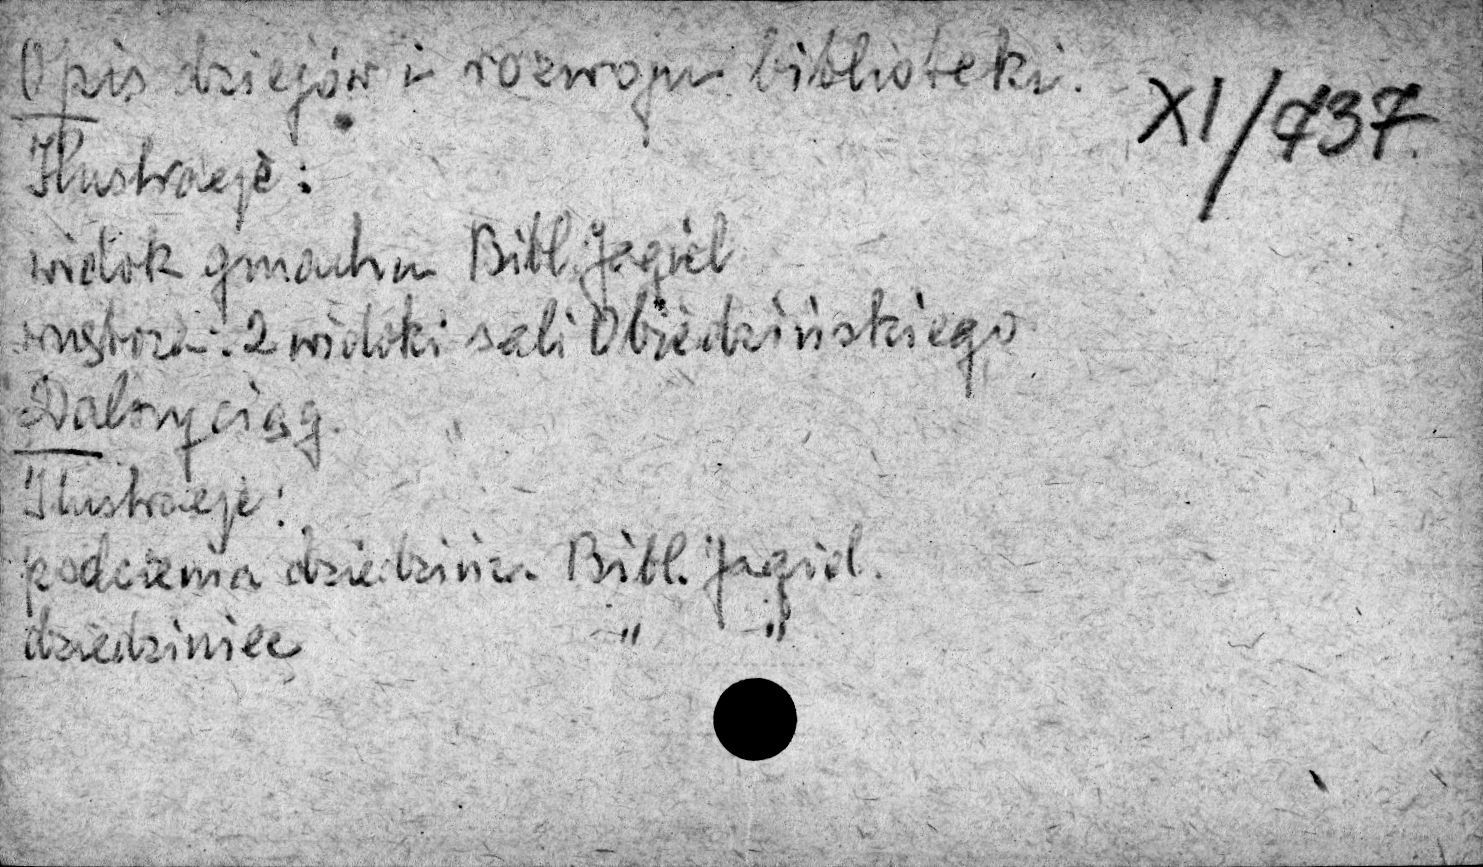 Opis dziejów i rozwoju biblioteki.
XI/437.
Ilustracje:
widok gmachu Bibl. Jagiel
wnętrza: 2 widoki sali Obiedzińskiego
Dalszy ciąg.
Ilustracje:
podcienia dziedzińca Bibl. Jagiel.
dziedziniec " "